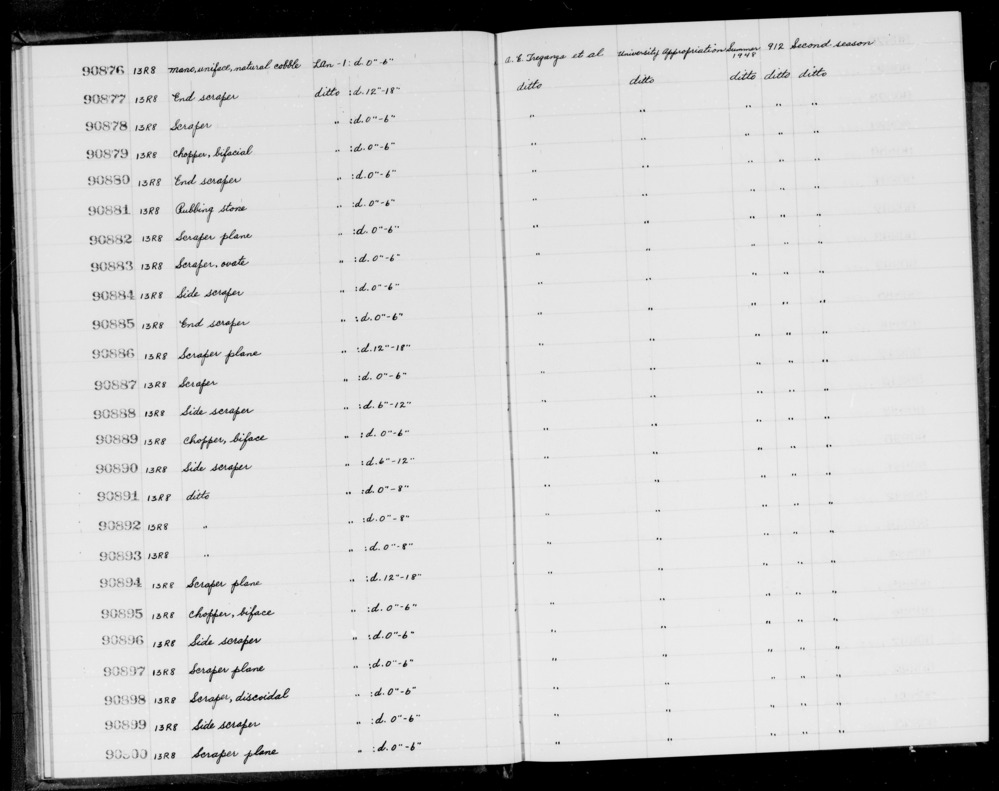 90876 13R8 mano, uniface, natural cobble LAn-1 : d. 0"-6" A. E. Treganza et al University Appropriation Summer 1948 912 Second season
90877 13R8 End scraper ditto : d. 12"-18" ditto ditto ditto ditto ditto
90878 13R8 Scraper " : d. 0"-6" " " " " "
90879 13R8 Chopper, bifacial " : d. 0"-6" " " " " "
90880 13R8 End scraper " : d. 0"-6" " " " " "
90881 13R8 Rubbing stone " : d. 0"-6" " " " " "
90882 13R8 Scraper plane " : d. 0"-6" " " " " "
90883 13R8 Scraper, ovate " : d. 0"-6" " " " " "
90884 13R8 Side scraper " : d. 0"-6" " " " " "
90885 13R8 End scraper " : d. 0"-6" " " " " "
90886 13R8 Scraper plane " : d. 12"-18" " " " " "
90887 13R8 Scraper " : d. 0"-6" " " " " "
90888 13R8 Side scraper " : d. 6"-12" " " " " "
90889 13R8 Chopper, biface " : d. 0"-6" " " " " "
90890 13R8 Side scraper " : d. 6"-12" " " " " "
90891 13R8 ditto " : d. 0"-8" " " " " "
90892 13R8 " " : d. 0"-8" " " " " "
90893 13R8 " " : d. 0"-8" " " " " "
90894 13R8 Scraper plane " : d. 12"-18" " " " " "
90895 13R8 Chopper, biface " : d. 0"-6" " " " " "
90896 13R8 Side scraper " : d. 0"-6" " " " " "
90897 13R8 Scraper plane " : d. 0"-6" " " " " "
90898 13R8 Scraper, discoidal " : d. 0"-6" " " " " "
90899 13R8 Side scraper " : d. 0"-6" " " " " "
13R8 Scraper plane " : d. 0"-6" " " " " "